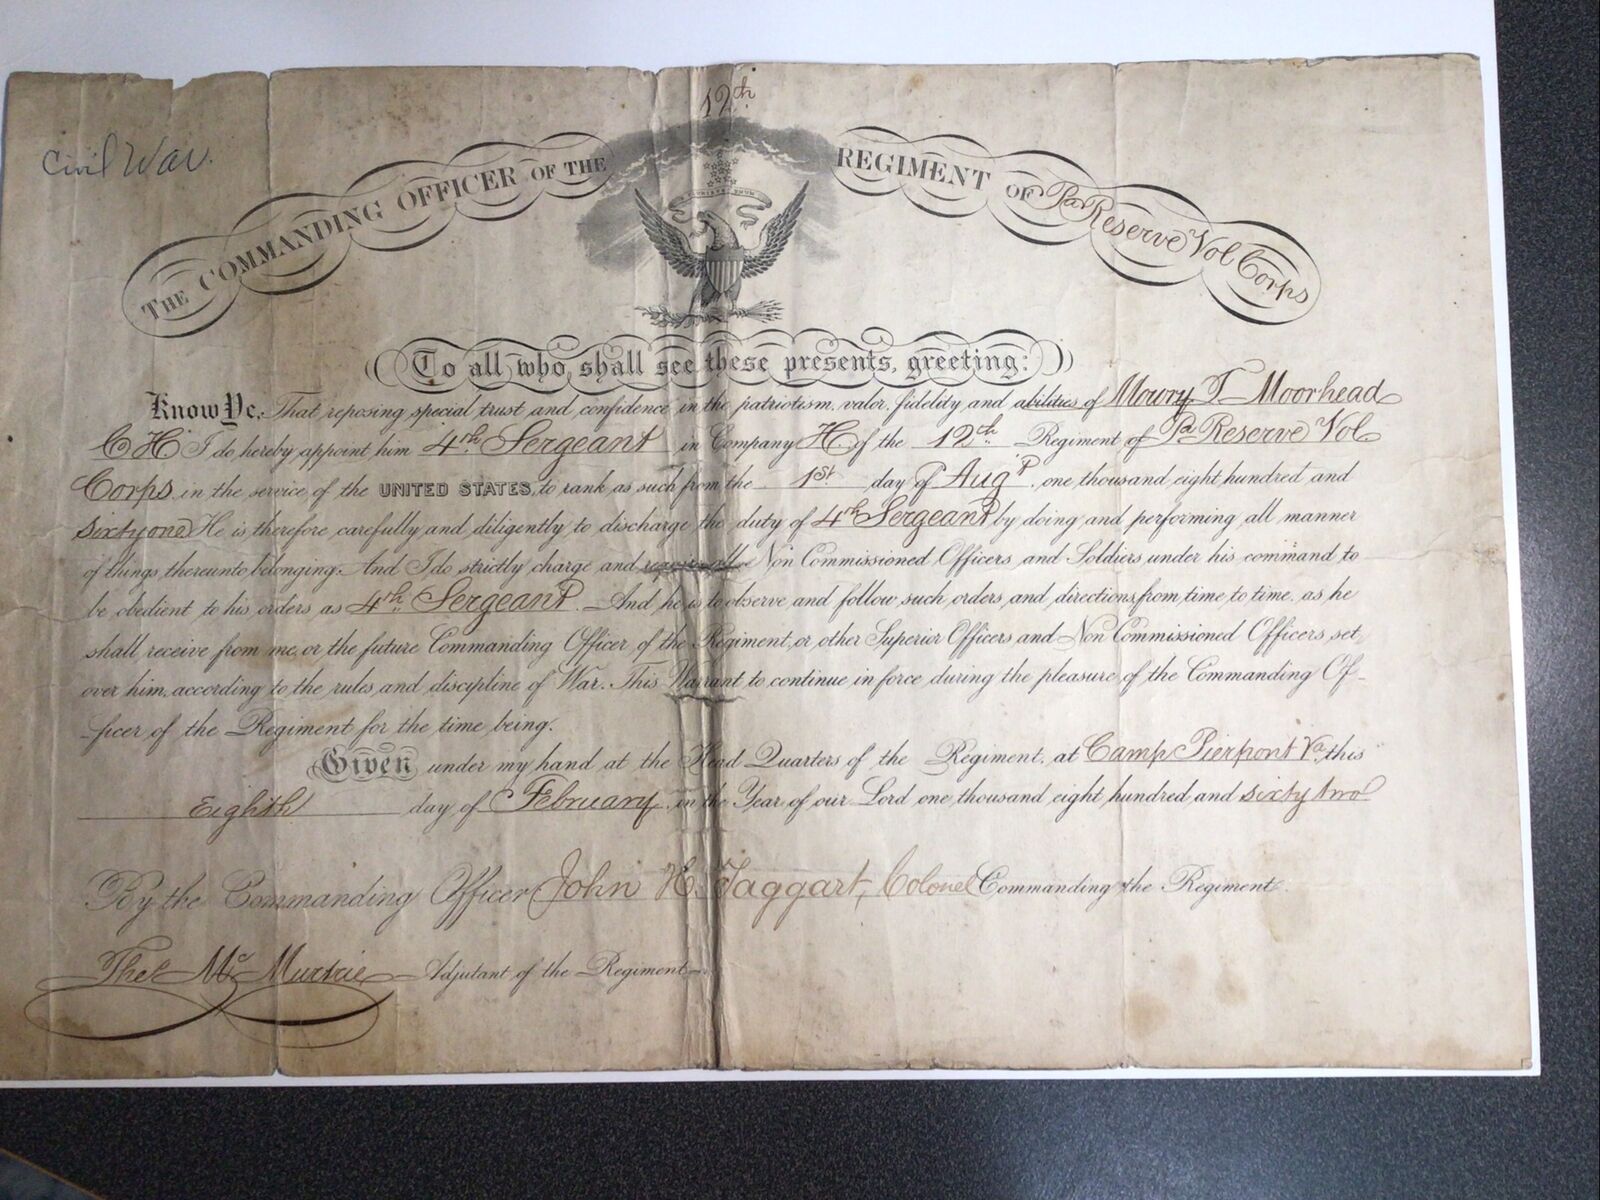 12th
Civil War.
THE COMMANDING OFFICER OF THE REGIMENT OF Pa Reserve Vol Corps
To all who shall see these presents, greeting:
Know Ye, That reposing special trust and confidence in the patriotism, valor, fidelity and abilities of Mowry T Moorhead
C H I do hereby appoint him 4th Sergeant in Company H. of the 12th Regiment of Pa Reserve Vol
Corps in the service of the UNITED STATES, to rank as such from the 1st day of Augt, one thousand eight hundred and
sixty one He is therefore carefully and diligently to discharge the duty of 4th Sergeant by doing and performing all manner
of things thereunto belonging. And I do strictly charge and require all Non Commissioned Officers and Soldiers under his command to
be obedient to his orders as 4th Sergeant. And he is to observe and follow such orders and directions from time to time, as he
shall receive from me, or the future Commanding Officer of the Regiment, or other Superior Officers and Non Commissioned Officers set
over him, according to the rules and discipline of War. This Warrant to continue in force during the pleasure of the Commanding Of-
ficer of the Regiment for the time being.
Given under my hand at the Head Quarters of the Regiment, at Camp Pierpont Va this
Eighth day of February in the Year of our Lord one thousand eight hundred and sixty two
By the Commanding Officer John H. Taggart, Colonel Commanding the Regiment.
Mc Murtrie Adjutant of the Regiment